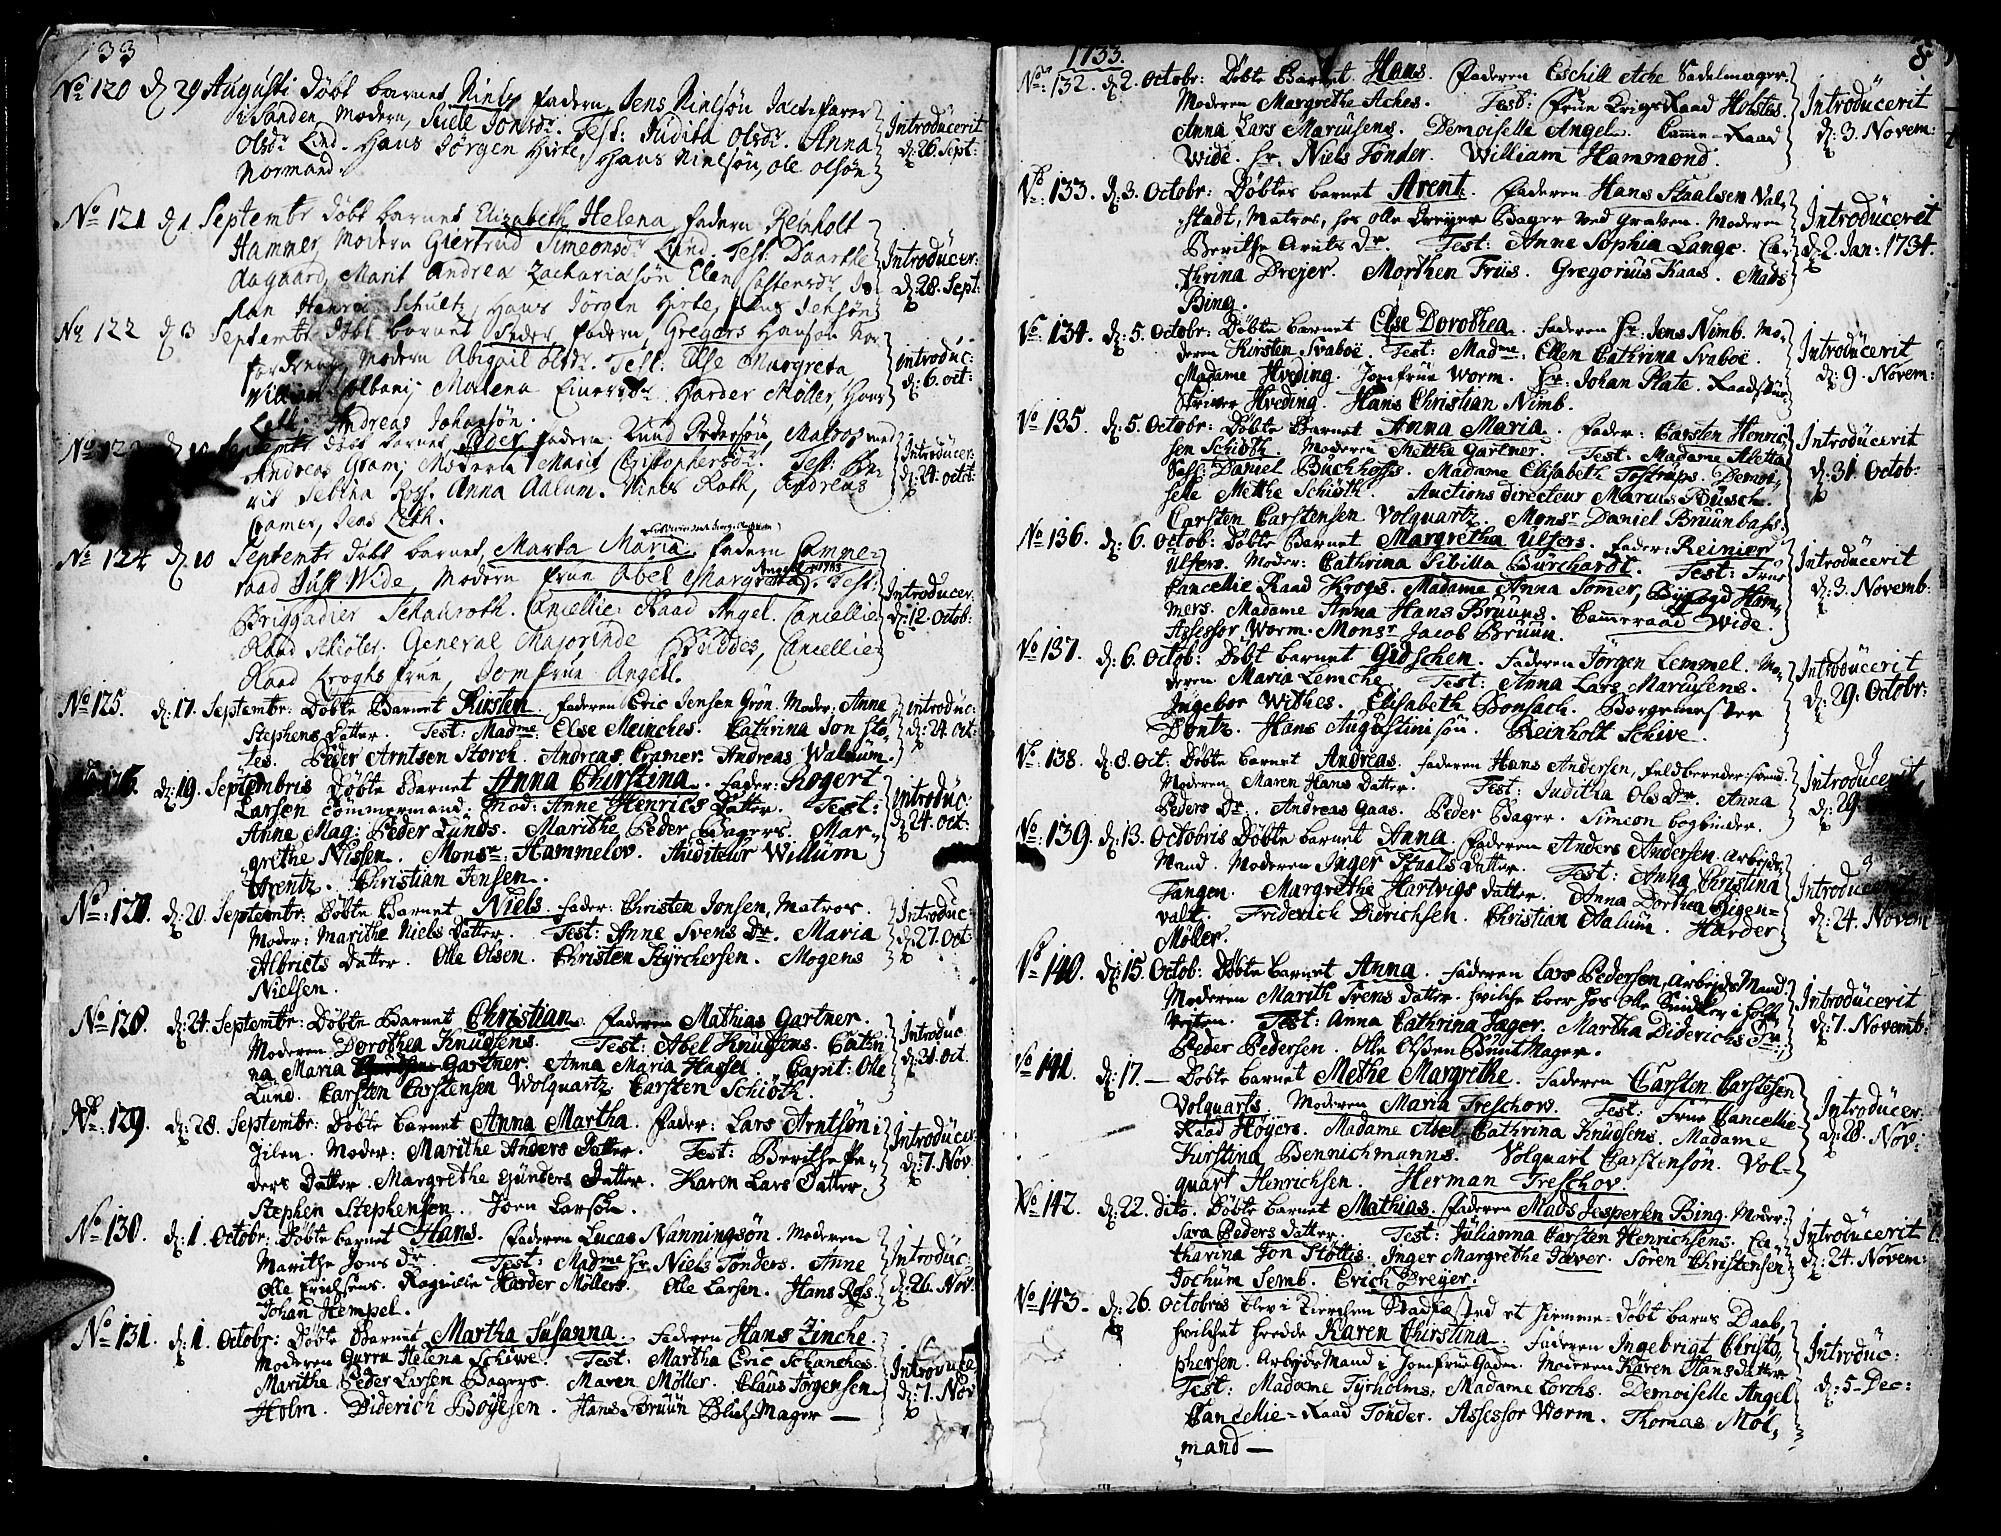 1733
No 120 d. 29 Augusti Døbt barnet Niels, fadern, Jens Nielsøn Jachtfarer
i Sanden, Modern, Siele Jonsdr. Test: Judita Olsdr. Anna
Olsdr Lind. Hans Jørgen Hirte, Hans Nielsøn, ole olsøn
Normand.
Introducerit
d: 26. Sept:
No 121 d 1 Septembr Døbt barnet Elizabeth Helena fadern Reinholt
Hammer, Modern Giertrud Simeonsdr Lund. Test: Daarthe
Aagaard, Marit Andrea Zachariasøn Elen Castensdr, Jo-
han Henric Schultz, Hans Jørgen Hirte, Jens Jensøn
Introducer:
d: 28. Sept:
No 122 d 3 Septembr Døbt barnet Peder, fadern, Gregers Hansøn
Modern Abigail olsdr. Test: Else Margreta
Malena Einersdr Harder Møller, Hans
Leth, Andreas Johansøn.
introduc:
d: 6. oct:
Septembr Døbt barnet Peder fadern. Knud Pedersøn, Matros med
Andreas Gram; Moderen Marit Christophersdr. Test: Be-
rit Sebina Ross. Anna Aalum. Niels Roth, Andreas
Cramer, Jens Leth.
Introducer:
d: 24. octob:
No 124 d. 10 Septembr Døbt barnet, Marta Maria. fadern Camme-
raad Just Wide, Modern frue Abel Margreta Angell. Test:
Briggadier Schauroth. Cancellie Raad Angel. Cancellie
Raad Schiøler. General Majorinde Buddes, Cancellie-
Raad Kroghs frue, Jomfrue Angell.
Introducer:
d: 12. Octob:
No 125. d: 17. Septembr: Døbte Barnet Kirsten. faderen Eric Jensen Grøn. Moder: Anne
Stephens Datter. Test: Madme Else Meinches. Cathrina Jon Stø-
tes. Peder Arntsen Storch. Andreas Cramer. Andreas Walnum.
introduc:
d: 24. oct:
126. d: 19. Septembris Døbte Barnet Anna Chirstina. Fader: Rogert
Larsen Tømmermand. Mod: Anne Henrics Datter. Test:
Anne Mag: Peder Lunds. Marithe Peder Bagers. Mar-
grethe Nissen. Monsr: Hammelov. Auditeur Willum
Arentz. Christian Jensen.
introduc:
d: 24. oct:
No: 127. d: 20. Septembr: Døbte Barnet Niels. Fader: Christen Jonsen, Matros.
Moder: Marithe Niels Datter. Test: Anne Svens Dr. Maria
Albriets Datter. Olle Olsen. Christen Styrchersen. Mogens
Nielsen.
Introduc:
d: 27. Oct:
No 128. d: 24. Septembr: Døbte Barnet Christian. Faderen Mathias Gartner.
Moderen Dorothea Knudsens. Test: Abel Knudsens. Cathri
na Maria Gartner. Anna Maria Hassel. Capit: Olle
Lund. Carsten Carstensen Volquartz. Carsten Schiøth.
Introduc:
d: 21. oct.
No: 129. d: 28. Septembr: Døbte Barnet Anna Martha. Fader: Lars Arntsøn i
Jilen. Moder: Marithe Anders Datter. Test: Berithe Pe-
ders Datter. Margrethe Gunders Datter. Karen Lars Datter.
Stephen Stephensen. Joen Larsøn.
Introducer:
d: 7. Nov.
No 130. d: 1. Octobr: Døbte barnet Hans. Faderen Lucas Nanningsøn. Moderen
Marithe Jons Dr. Test: Madme Hr. Niels Tønders. Anne
Olle Erichsens. Harder Møller. Olle Larsen. Hans Ross.
Johan Hempel.
Introduc:
d: 26. Nov.
No 131. d: 1. Octobr: Døbte Barnet Martha Susanna. Faderen Hans Zinche.
Moderen Gurru Helena Schive. Test: Martha Eric Schanches.
Marithe Peder Larsen Bagers. Maren Møller. Claus Jørgensen
Holm. Diderich Boyesen. Hans Bruun Blich Mager —
Introduce
d: 7. Nov
1733.
8
No: 132. d: 2. Octobr: Døbte Barnet Hans. Faderen Eschill Ache Sadelmager.
Moderen Margrethe Aches. Test: Frue Krigs Raad Holstes.
Anna Lars Marcusens. Demoiselle Angel. Camme-Raad
Wide. Hr. Niels Tønder. William Hammond.
Introducerit
d: 3. Novem:
No: 133. d: 3. Octobr: Døbtes barnet Arent. Faderen Hans Staalsen Val-
stadt, Matros, hos Olle Dreyer Bager ved Graven. Moderen
Berithe Arnts Dr. Test: Anne Sophia Lange. Ca-
thrina Drejer. Morthen Friis. Gregorius Kaas. Mads
Bing.
Introducerit
d: 2. Jan: 1734.
No: 134. d: 5. Octobr: Døbte barnet Else Dorothea. Faderen Hr. Jens Nimb. Mo-
deren Kirsten Svaboe. Test: Madme: Ellen Cathrina Svaboe.
Madame Hveding. Jomfrue Worm. Hr. Johan Plate. Raadstue
Skriver Hveding. Hans Christian Nimb.
Introducerit
d: 9. Novem:
No 135. d: 5. Octobr: Døbte Barnet Anna Maria. Fader: Carsten Henric
sen Schiøth. Moderen Metthe Gartner. Test: Madame Aletta
Sal: Daniel Buchhoffs. Madame Elisabeth Tostrups. Demoi-
selle Methe Schiøth. Auctions directeur Marcus Busch.
Carsten Carstensen Volquartz. Monsr Daniel Bruunbass.
Introducerit
d: 31. Octob:
No 136. d: 6. Octob: Døbte Barnet Margretha Ulfers. Fader: Reinier
Ulfers. Moder: Cathrina Sibilla Burchardt. Test: Frue
Cancellie Raad Krogs. Madame Anna Somer, Byfogd Ham-
mers. Madame Anna Hans Bruuns. Cammeraad Wide.
Assessor Worm. Monsr Jacob Bruun.
Introducerit
d: 3. Novemb:
No 137. d: 6. Octob: Døbt barnet Gidschen. Faderen Jørgen Lemmel. Mo-
deren Maria Lemche. Test: Anna Lars Marcusens.
Ingebor Withes. Elisabeth Bonsach. Borgemester
Dontz. Hans Augustinisøn. Reinholt Schive.
Introducerit
d: 29. Octobr:
No. 138. d: 8. Oct: Døbte barnet Andreas. Faderen Hans Andersen, Feldbereder-svend.
Moderen Maren Hans Datter. Test: Juditha Ols Dr. Anna
Peders Dr. Andreas Gaas. Peder Bager. Simeon bogbinder.
Introducerit
d: 29
No: 139. d: 13. Octobris Døbte barnet Anna. Faderen Anders Andersen. Arbejds
Mand. Moderen Inger Staals Datter. Test: Anna Christina
Tangen. Margrethe Hartvigs Datter. Anna Dorthea Bigen-
valt. Friderich Didrichsen. Christian Aalum. Harder
Møller.
Introducerit
d: 24. Novem
No 140. d: 15. Octob: Døbte barnet Anna. Faderen Lars Pedersen, Arbejds Mand.
Moderen Marith Svens Datter. hvilche boer hos Olle Snidker i Holl
Test: Anna Cathrina Jager. Martha Diderichs Dr.
Peder Pedersen. Olle Olsen Buntmager.
Introducerit
d: 7. Novemb:
No 141. d: 17. — Døbte barnet Methe Margrethe. Faderen Carsten Carstesen
Volquarts. Moderen Maria Treschow. Test: Frue Cancellie-
Raad Høyers. Madame Abel Cathrina Knudsens. Madame
Kirstina Bennichmanns. Volquart Carstensøn. Vol-
quart Henrichsen. Herman Treschov.
Introducer:
d: 28. Nov:
No 142. d: 22. dito. Døbte Barnet Mathias. Faderen Mads Jespersen Bing. Moder:
Sara Peders Datter. Test: Julianna Carsten Henrichsens. Ca-
tharina Jon Støttis. Inger Margrethe Jæver. Søren Christensen
Jochum Semb. Erich Breyer.
Introducerit
d: 24. Novem:
No 143. d: 26. Octobris blev i Kierchen Stadfæsted et hiemme-døbt barns Daab,
hvilchet hedde Karen Chirstina. Faderen Ingebrigt Christo-
phersen. Arbejds Mand i Jomfrue Gaden. Moderen Karen Hans datter
Test: Madame Tyrholms. Madame Lorchs. Demoiselle Angel
Cancellie-Raad Tønder. Assessor Worm. Thomas Mol-
mand —
Introduc:
d: 5-Dec: